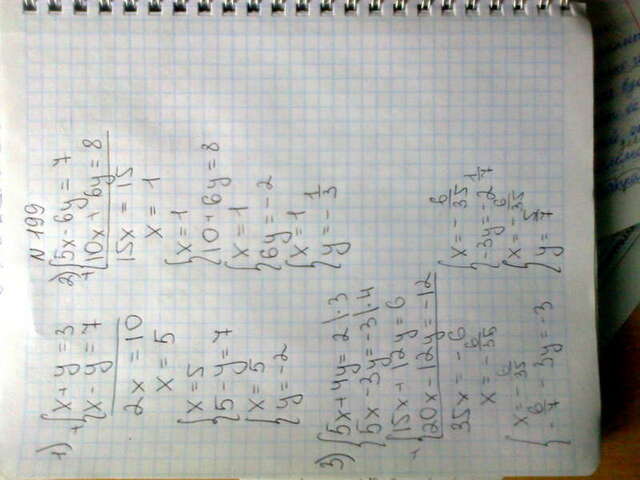 N 199
1) x + y = 3
x - y = 7
2x = 10
x = 5
x = 5
5 - y = 7
x = 5
y = -2
2) 5x - 6y = 7
10x + 6y = 8
15x = 15
x = 1
x = 1
10 + 6y = 8
x = 1
6y = -2
x = 1
y = - 1/3
3) 5x + 4y = 2 | · 3
5x - 3y = -3 | · 4
15x + 12y = 6
20x - 12y = -12
35x = -6
x = - 6/35
x = - 6/35
- 6/7 - 3y = -3
x = - 6/35
-3y = -2 1/7
x = - 6/35
y =